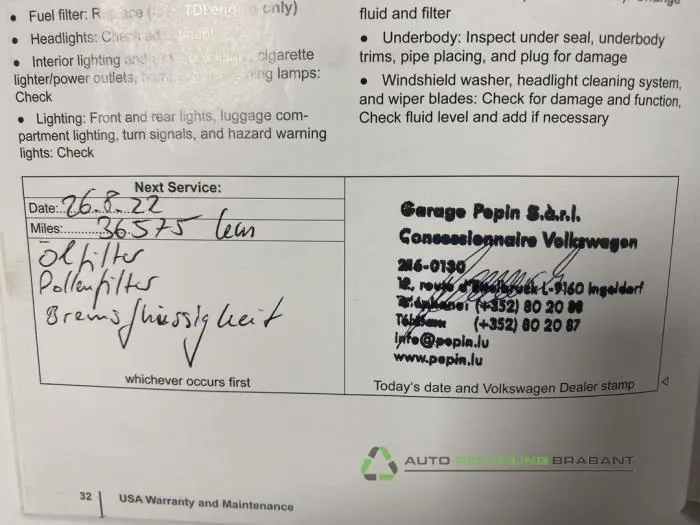 • Fuel filter: only)
• Headlights:
• Interior lighting cigarette
lighter/power outlets, lamps:
Check
• Lighting: Front and rear lights, luggage com-
partment lighting, turn signals, and hazard warning
lights: Check
fluid and filter
• Underbody: Inspect under seal, underbody
trims, pipe placing, and plug for damage
• Windshield washer, headlight cleaning system,
and wiper blades: Check for damage and function,
Check fluid level and add if necessary
Next Service:
Date: 26.8.22
Miles: 36575 km
Ölfilter
Pollenfilter
Bremsflüssigkeit
whichever occurs first
Garage Pepin S.à.r.l.
Concessionnaire Volkswagen
12, L-9160 Ingeldorf
(+352) 80 20
(+352) 80 20 87
info@pepin.lu
www.pepin.lu
Today's date and Volkswagen Dealer stamp
AUTO RECYCLING BRABANT
32 USA Warranty and Maintenance